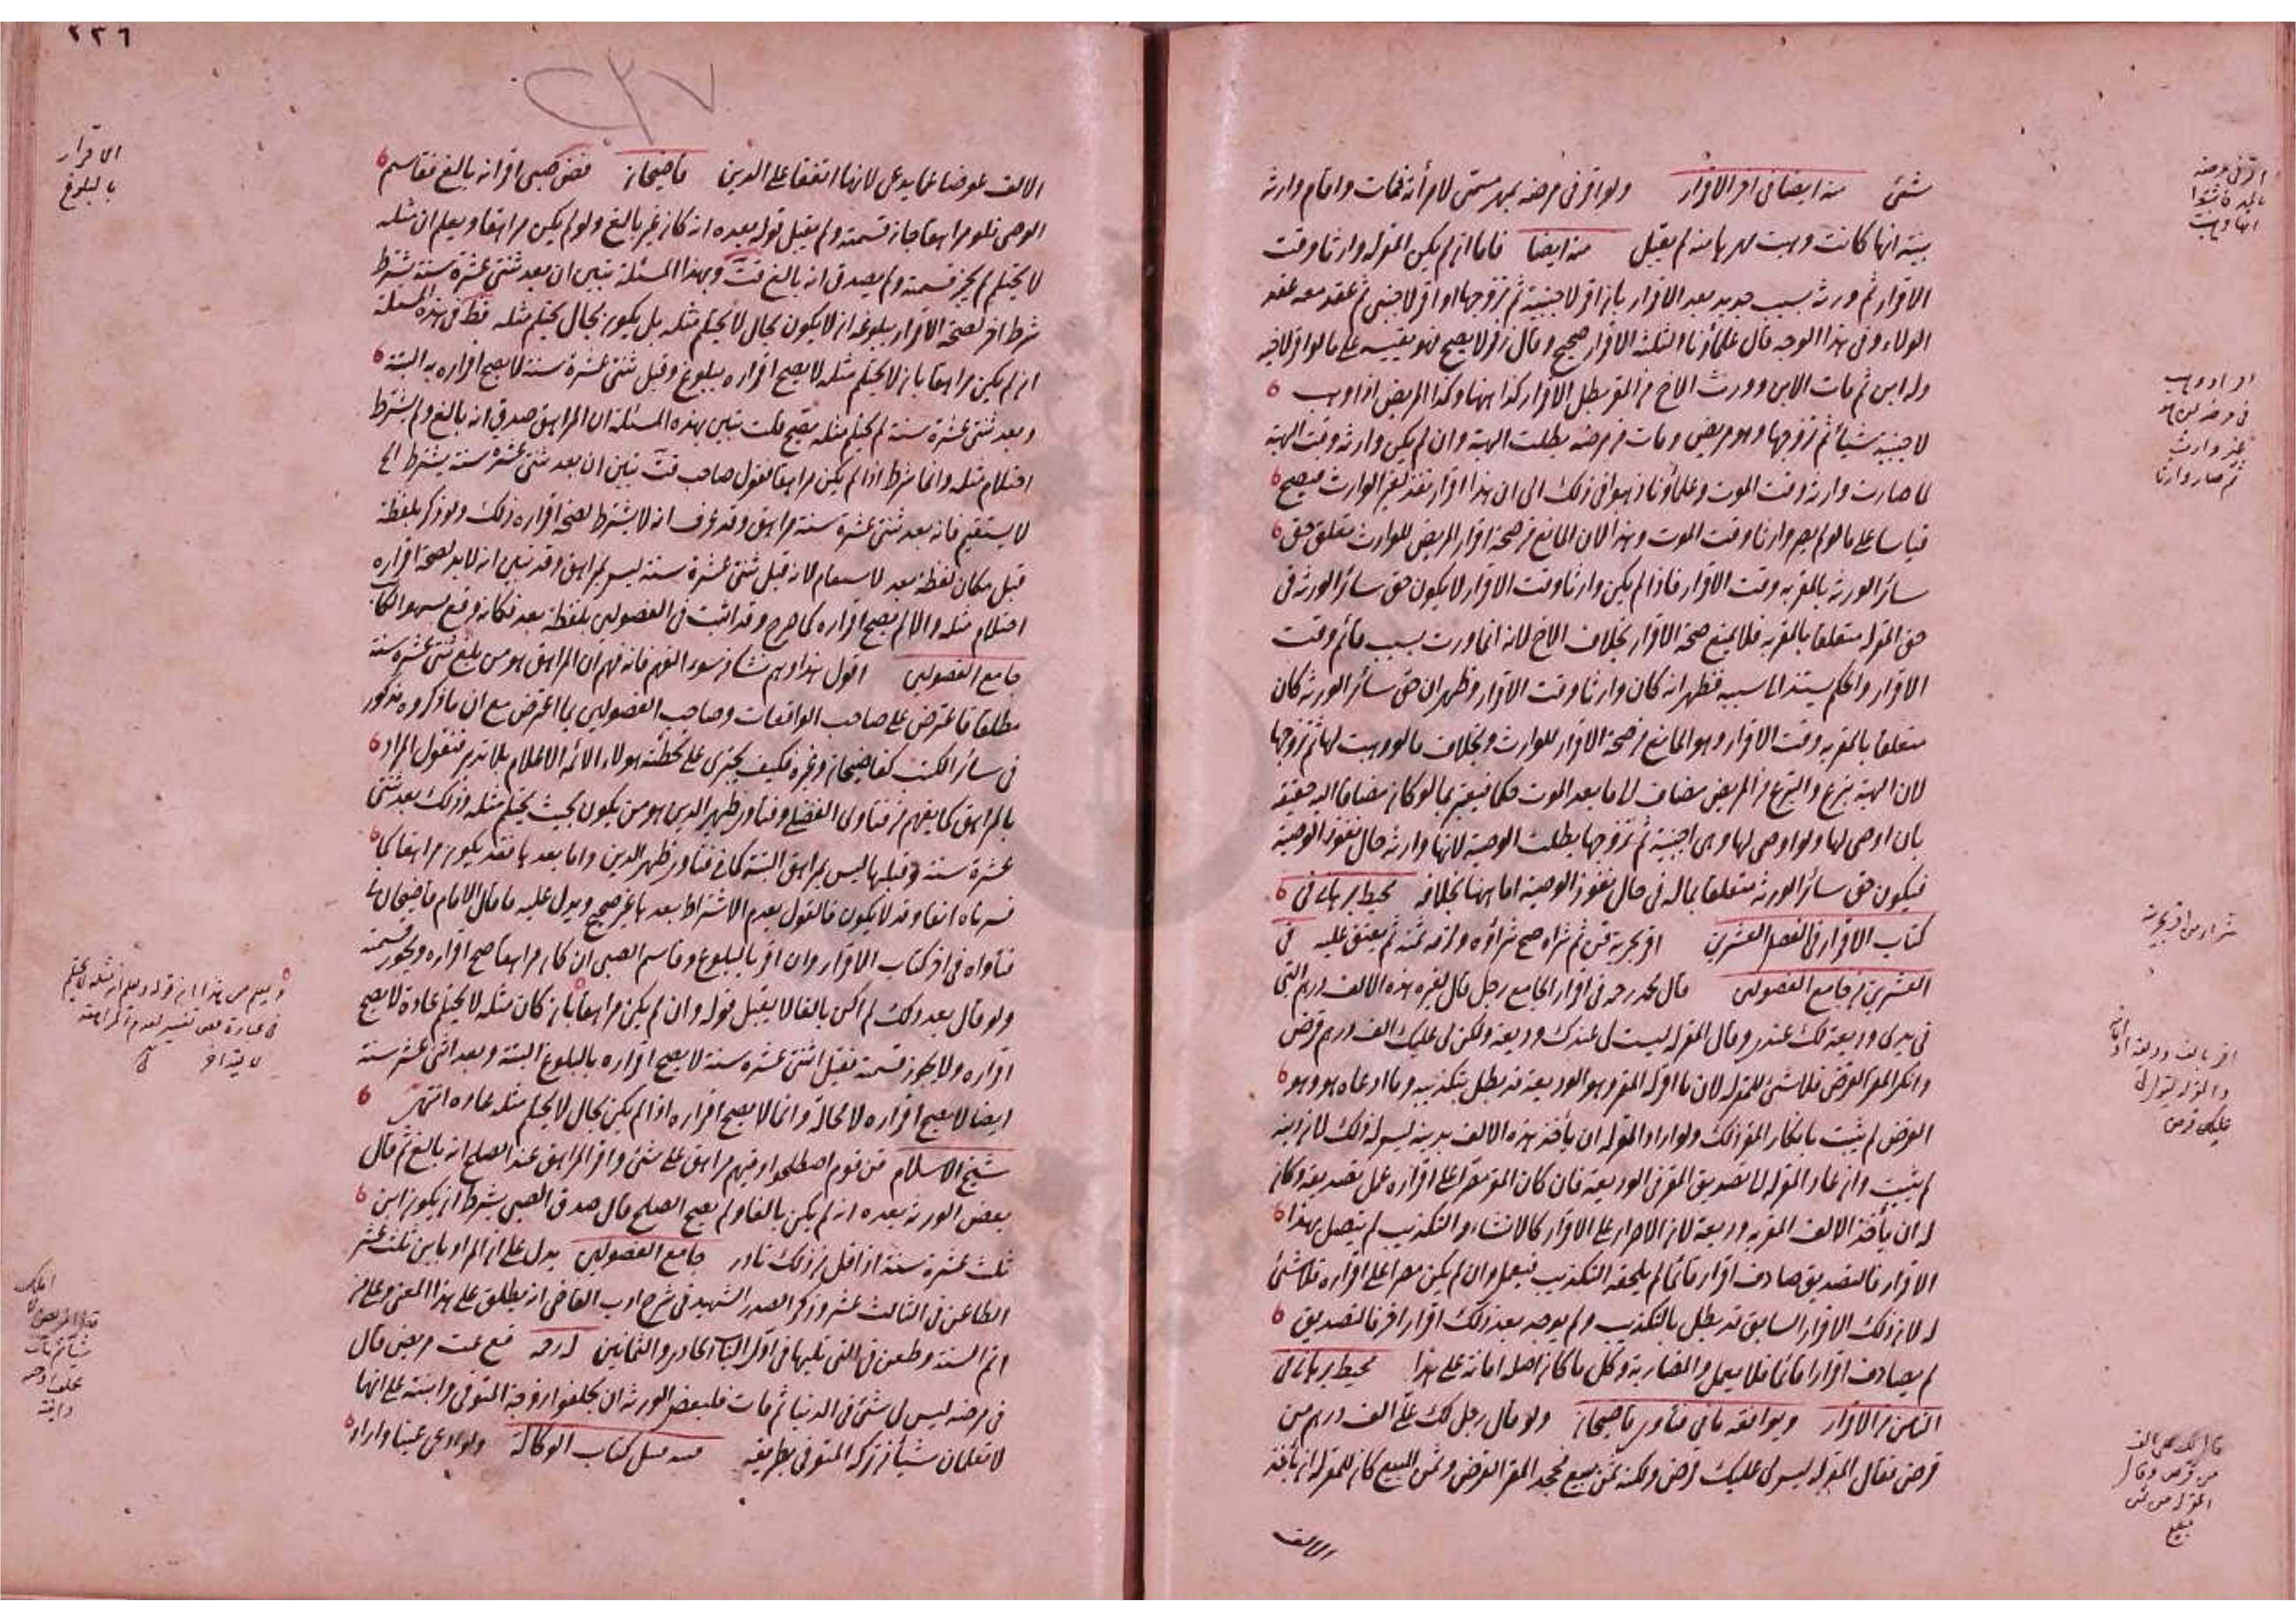 شئ منه ايضا في اخر الاقرار ولو اقر في مرضه بمهر مسمى لامرأته فمات واقام وارثه
بينة انها كانت وهبت مهرها منه لم يقبل منه ايضا فاما ان لم يكن المقر له وارثا وقت
الاقرار ثم ورثه بسبب جديد بعد الاقرار بان اقر لاجنبية ثم تزوجها او اقر لاجنبي ثم عقد معه عقد
الولاء وفي هذا الوجه قال علماؤنا الثلثة الاقرار صحيح وقال زفر لا يصح فهو يقيسه على ما لو اقر لاخيه
وله ابن ثم مات الابن وورث الاخ من المقر بطل الاقرار كذا ههنا وكذا المريض اذا وهب
لاجنبية شيأ ثم تزوجها وهو مريض ومات من مرضه بطلت الهبة وان لم يكن وارثه وقت الهبة
لما صارت وارثة وقت الموت وعلماؤنا ذهبوا في ذلك الى ان هذا اقرار نفذ لغير الوارث فيصح
قياسا على ما لو لم يصر وارثا وقت الموت وهذا لان المانع من صحة اقرار المريض للوارث تعلق حق
سائر الورثة بالمقر به وقت الاقرار فاذا لم يكن وارثا وقت الاقرار لا يكون حق سائر الورثة في
حق المقر له متعلقا بالمقر به فلا يمنع صحة الاقرار بخلاف الاخ لانه انما ورث بسبب قائم وقت
الاقرار والحكم يستند الى سببه فظهر انه كان وارثا وقت الاقرار وظهر ان حق سائر الورثة كان
متعلقا بالمقر به وقت الاقرار وهو المانع من صحة الاقرار للوارث وبخلاف ما لو وهبت لها ثم تزوجها
لان الهبة تبرع والتبرع من المريض مضاف الى ما بعد الموت حكما فيعتبر بما لو كان مضافا اليه حقيقة
بان اوصى لها ولو اوصى لها وهى اجنبية ثم تزوجها بطلت الوصية لانها وارثة حال نفوذ الوصية
فيكون حق سائر الورثة متعلقا بماله في حال نفوذ الوصية اما ههنا بخلافه محيط برهانى في
كتاب الاقرار في الفصل العشرين اقر بحرية قن ثم شراه صح شراؤه ولزمه ثمنه ثم يعتق عليه في
العشرين من جامع الفصولين قال محمد رحه في اقرار الجامع رجل قال لغيره هذه الالف درهم التى
في يدى وديعة لك عندى وقال المقر له ليست لى عندك وديعة ولكن لى عليك الف درهم قرض
وانكر المقر القرض فلا شئ للمقر له لان ما اقر له المقر وهو الوديعة قد بطل بتكذيبه وما ادعاه هو وهو
القرض لم يثبت بانكار المقر ذلك ولو اراد المقر له ان يأخذ هذه الالف بدينه ليس له ذلك لان دينه
لم يثبت وان عاد المقر له الى تصديق المقر في الوديعة فان كان المقر مصرا على اقراره عمل تصديقه وكان
له ان يأخذ الالف المقر به وديعة لان الاصرار على الاقرار كالانشاء والتكذيب لم يتصل بهذا
الاقرار فالتصديق صادف اقرارا قائما لم يلحقه التكذيب فيعمل وان لم يكن مصرا على اقراره فلا شئ
له لان ذلك الاقرار السابق قد بطل بالتكذيب ولم يوجد بعد ذلك اقرار اخر فالتصديق
لم يصادف اقرارا قائما فلا يعمل والمضاربة وكل ما كان اصله امانة على هذا محيط برهانى في
الثامن من الاقرار ويوافقه ما في فتاوى قاضيخان ولو قال رجل لك على الف درهم من
قرض فقال المقر له ليس لى عليك قرض ولكنه ثمن مبيع فجحد المقر القرض وثمن المبيع كان للمقر له ان يأخذ
الالف
اقر في مرضه
اقر او وهب
في مرضه لمن هو
غير وارث
ثم صار وارثا
شراء من اقر بحريته
اقر بالف وديعة
والمقر له يقول لى
عليك قرض
قال لك على الف
من قرض وقال
المقر له من ثمن
مبيع
٢٣٦
٢٣٧
الالف عوضا عما يدعى لانهما اتفقا على الدين قاضيخان فض صبى اقر انه بالغ فقاسم
الوصى فلو مراهقا جاز قسمته ولم يقبل قوله بعده انه كان غير بالغ ولو لم يكن مراهقا ويعلم ان مثله
لا يحتلم لم يجز قسمته ولم يصدق انه بالغ قت وبهذا المسئلة تبين ان بعد ثنتى عشرة سنة يشترط
شرط اخر لصحة الاقرار ببلوغه ان لا يكون بحال لا يحتلم مثله بل يكون بحال يحتلم مثله فظ في هذه المسئلة
ان لم يكن مراهقا بان لا يحتلم مثله لا يصح اقراره ببلوغ وقبل ثنتى عشرة سنة لا يصح اقراره به البتة
وبعد ثنتى عشرة سنة لم يحتلم مثله يصح قلت تبين بهذه المسئلة ان المراهق صدق انه بالغ ولم يشترط
احتلام مثله وانما شرط اذا لم يكن مراهقا فقول صاحب قت تبين ان بعد ثنتى عشرة سنة يشترط الخ
لا يستقيم فانه بعد ثنتى عشرة سنة مراهق وقد عرف انه لا يشترط لصحة اقراره ذلك ولو ذكر بلفظة
قبل مكان لفظة بعد لاستقام لانه قبل ثنتى عشرة سنة ليس بمراهق وقد تبين انه لا بد لصحة اقراره
احتلام مثله والا لم يصح اقراره كما صرح وقد اثبت في الفصولين بلفظة بعد فكانه وقع سهو الكا
جامع الفصولين اقول هذا وهم نشأ من سوء الفهم فانه فهم ان المراهق هو من بلغ ثنتى عشرة سنة
مطلقا فاعترض على صاحب الواقعات وصاحب الفصولين بما اعترض مع ان ما ذكروه مذكور
في سائر الكتب كقاضيخان وغيره فكيف يجترى على تخطئة هؤلاء الائمة الاعلام بلا تدبر فنقول المراد
بالمراهق كما يفهم من فتاوى الفضلى وفتاوى ظهير الدين هو من يكون بحيث يحتلم مثله وذلك بعد ثنتى
عشرة سنة وقبلها ليس بمراهق البتة كما في فتاوى ظهير الدين واما بعدها فقد يكون مراهقا كما
فسرناه انفا وقد لا يكون فالقول بعدم الاشتراط بعدها غير صحيح ويدل عليه ما قال الامام قاضيخان في
فتاواه في اخر كتاب الاقرار وان اقر بالبلوغ وقاسم الصبى ان كان مراهقا صح اقراره ويجوز قسمته
ولو قال بعد ذلك لم اكن بالغا لا يقبل قوله وان لم يكن مراهقا بان كان مثله لا يحتلم عادة لا يصح
اقراره ولا يجوز قسمته فقبل اثنتى عشرة سنة لا يصح اقراره بالبلوغ البتة وبعد اثنتى عشرة سنة
ايضا لا يصح اقراره لا محالة وانما لا يصح اقراره اذا لم يكن بحال لا يحتلم مثله عادة انتهى
شيخ الاسلام قن قوم اصطلحوا وفيهم مراهق على شئ واقر المراهق عند الصلح انه بالغ ثم قال
بعض الورثة بعده انه لم يكن بالغا ولم يصح الصلح قال صدق الصبى بشرط ان يكون ابن
ثلث عشرة سنة اذ اقل من ذلك نادر جامع الفصولين يدل على ان المراد بابن ثلث عشر
الطاعن في الثالث عشر وذكر الصدر الشهيد في شرح ادب القاضى انه يطلق على هذا المعنى وعلى من
اتم السنة وطعن في التى تليها في اول الباب الحادى والثمانين له رحه قع عت مريض قال
في مرضه ليس لى شئ في الدنيا ثم مات فلبعض الورثة ان يحلفوا زوجة المتوفى وابنته على انها
لا تعلمان شيأ من تركة المتوفى بطريقه منه قبيل كتاب الوكالة ولو ادعى عينا واراد
الاقرار
بالبلوغ